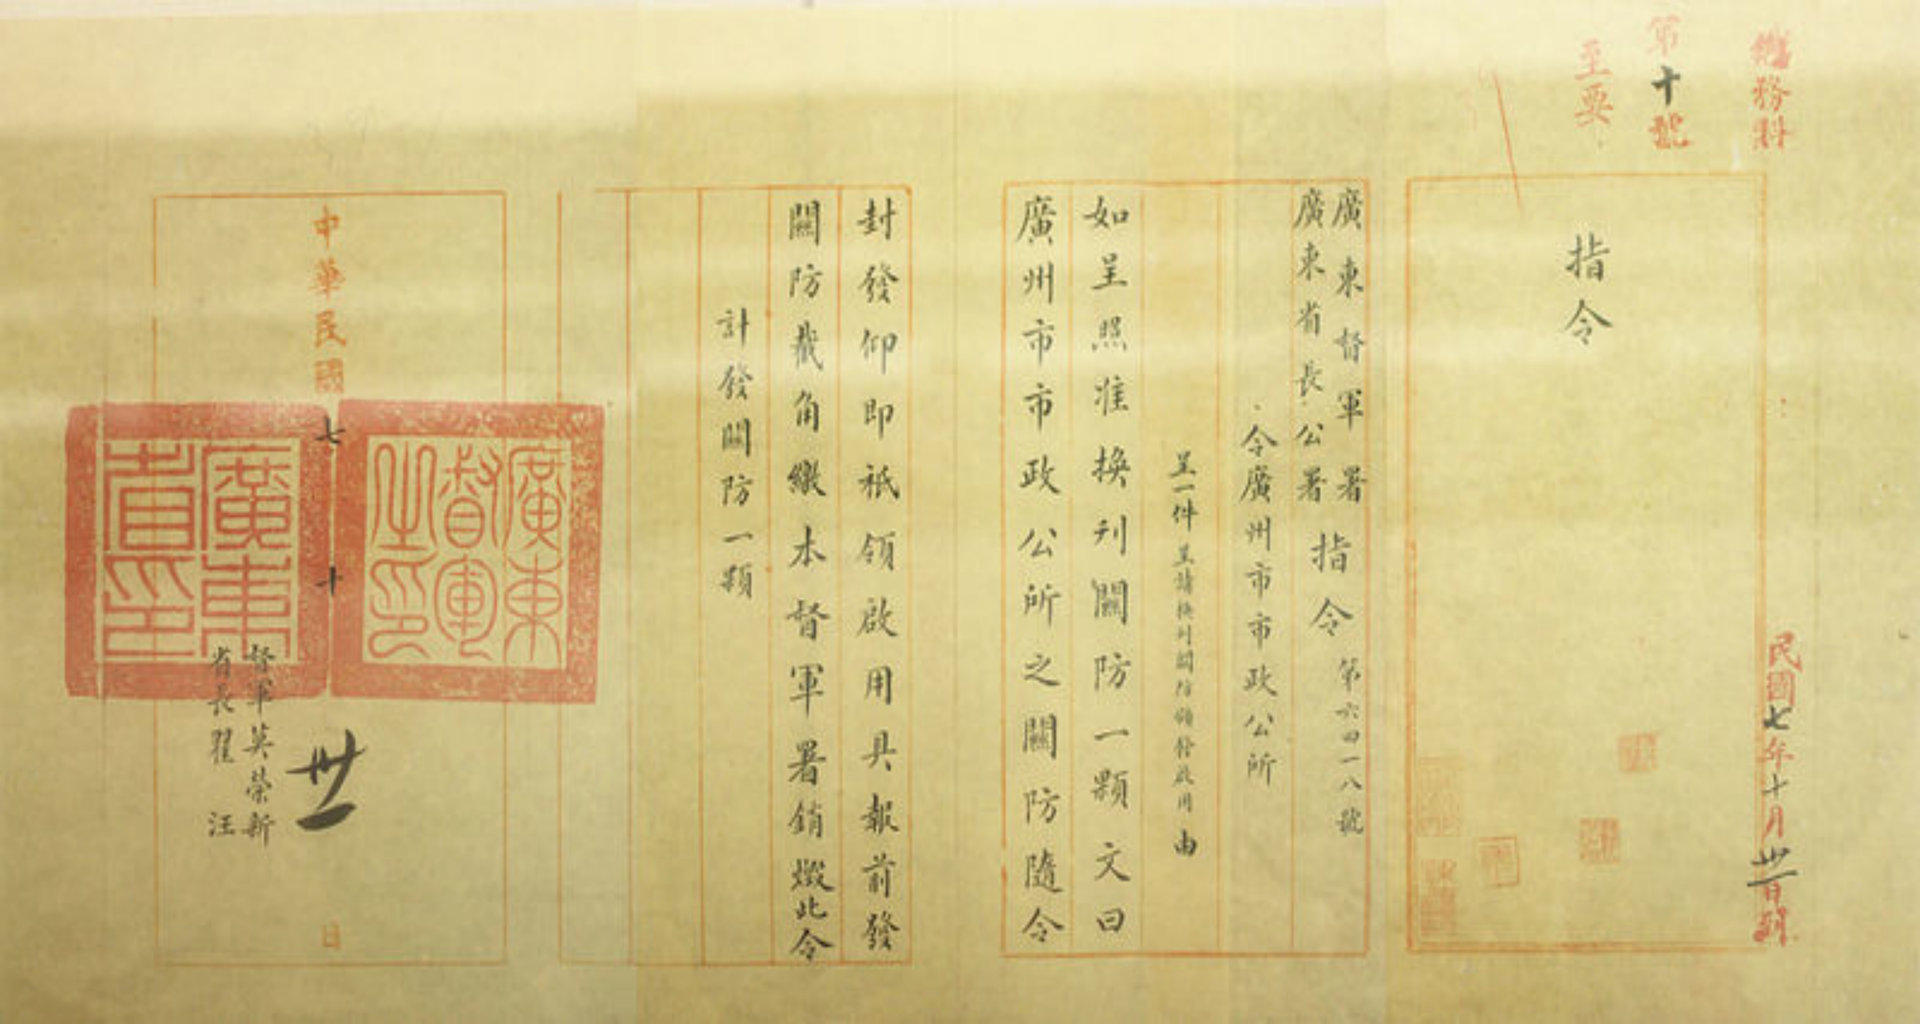 總務科
第十號
至要
民國七年十月卅一日到
指令
廣東督軍署
廣東省長公署
指令
第六四一八號
令廣州市市政公所
呈一件呈請換刊關防頒發啟用由
如呈照准換刊關防一顆文曰
廣州市市政公所之關防隨令
封發仰即祇領啟用具報前發
關防截角繳本督軍署銷燬此令
計發關防一顆
中華民國七十卅一日
廣東督軍之印
廣東省印
督軍莫榮新
省長翟汪